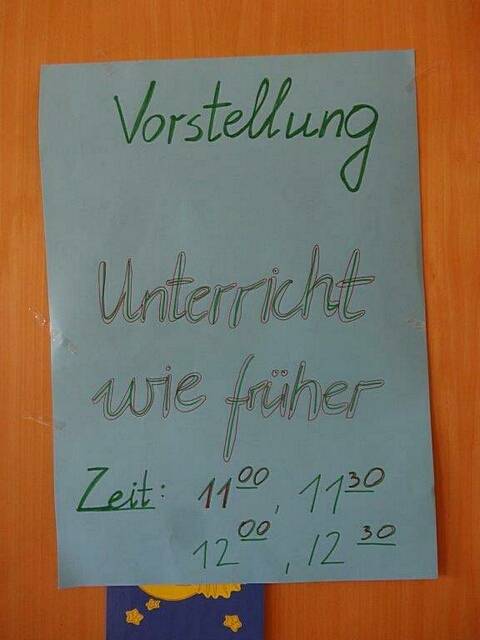 Vorstellung
Unterricht
wie früher
Zeit: 11 00, 11 30
12 00, 12 30